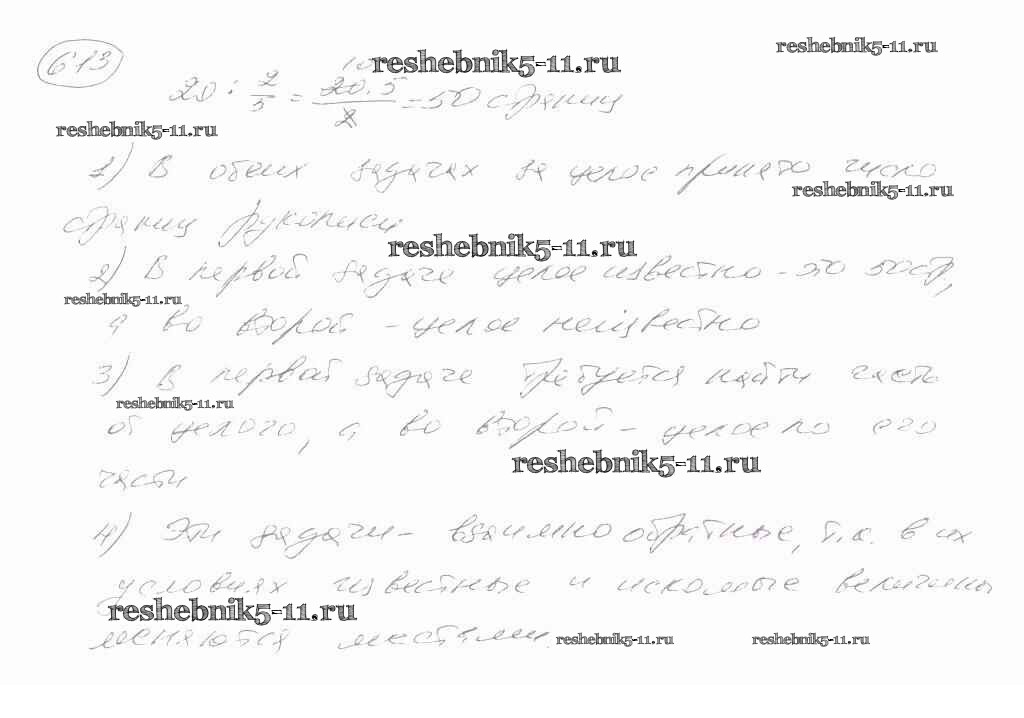 613
reshebnik5-11.ru
reshebnik5-11.ru
20 : 2/5 = 20·5/2 = 50 страниц
reshebnik5-11.ru
1) В обеих задачах за целое принято число
reshebnik5-11.ru
страниц рукописи
reshebnik5-11.ru
2) В первой задаче целое известно - это 50 стр,
reshebnik5-11.ru
а во второй - целое неизвестно
3) В первой задаче требуется найти часть
reshebnik5-11.ru
от целого, а во второй - целое по его
reshebnik5-11.ru
части
4) Эти задачи - взаимно обратные, т.к. в их
условиях известные и искомые величины
reshebnik5-11.ru
меняются местами.
reshebnik5-11.ru
reshebnik5-11.ru